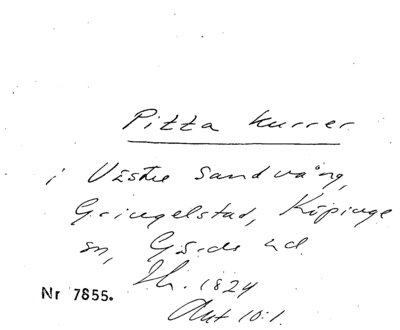 Pitta Kurrer
i Västre Sandvång,
Gringelstad, Köpinge
sn, Gärds hd.
Sk. 1824
Nr 7855.
Akt 10:1.